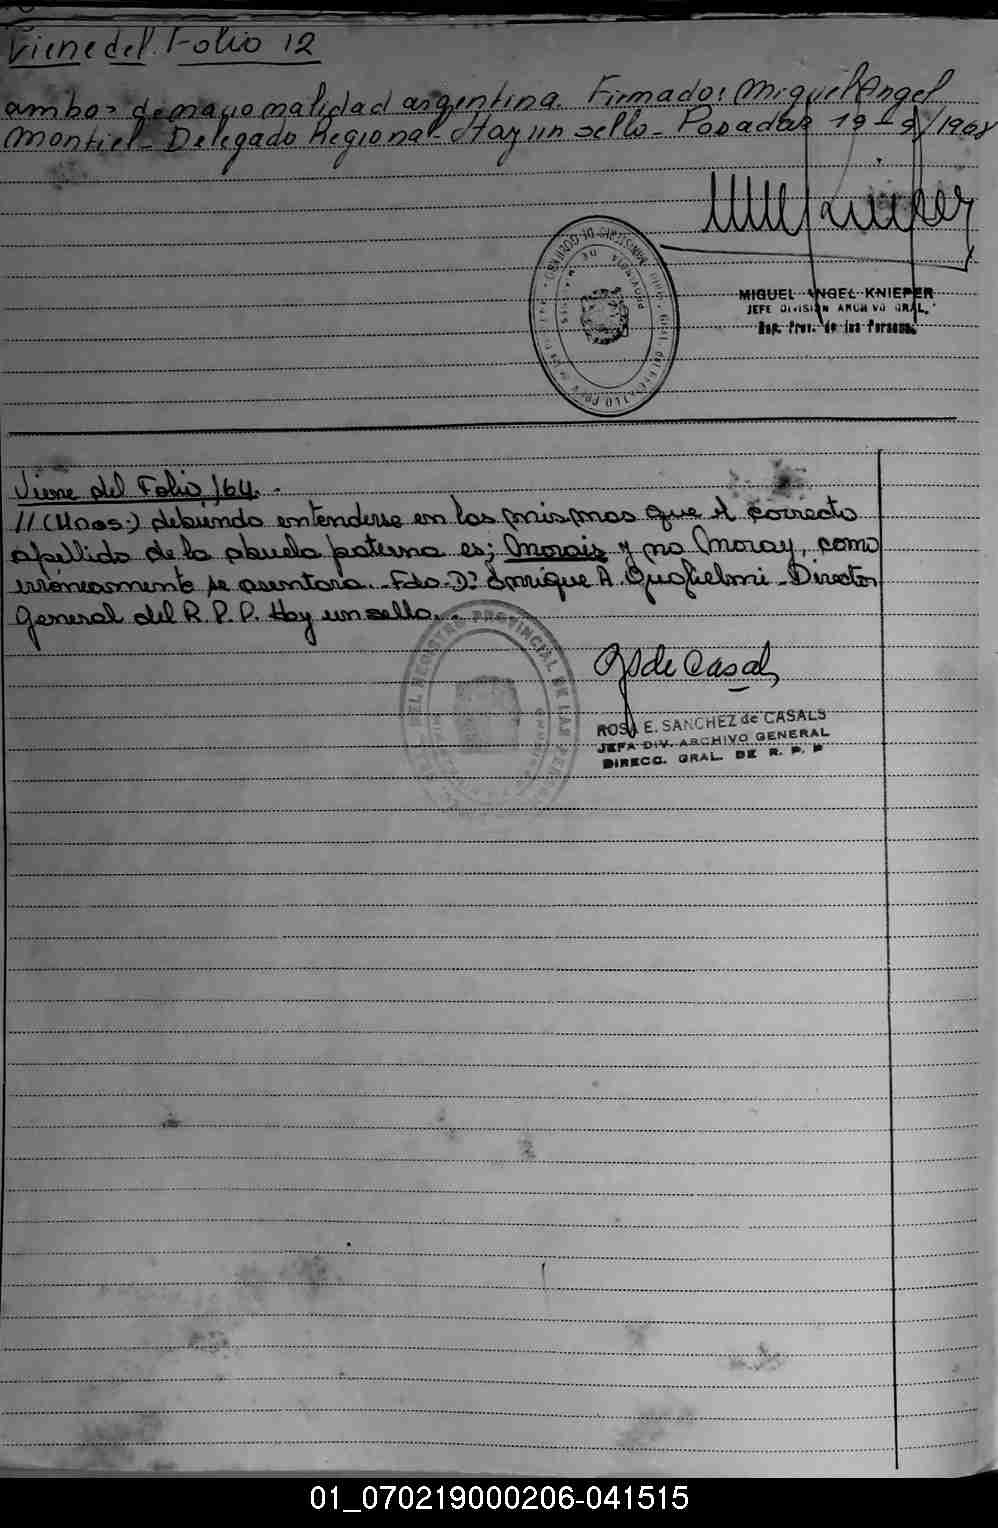 Viene del Folio 12
ambos de mayo nalidad argentina. Firmado: Miguel Angel
Montiel - Delegado Regional - Hay un sello - Posadas 19-9/1968
MIGUEL ANGEL KNIEPER
JEFE DIVISION ARCHIVO GRAL.
Reg. Prov. de las Personas
Viene del Folio 164.
// (unos:) debiendo entenderse en los mismos que el correcto
apellido de la abuela paterna es; Morais y no Moray, como
erróneamente se asentara. - Fdo. Dr. Enrique A. Guglielmi - Director
General del R. P. P. Hay un sello.
DEL REGISTRO PROVINCIAL DE LAS PERSONAS
R S de Casals
ROSA E. SANCHEZ de CASALS
JEFA DIV. ARCHIVO GENERAL
DIRECC. GRAL. DE R. P. P
01_070219000206-041515